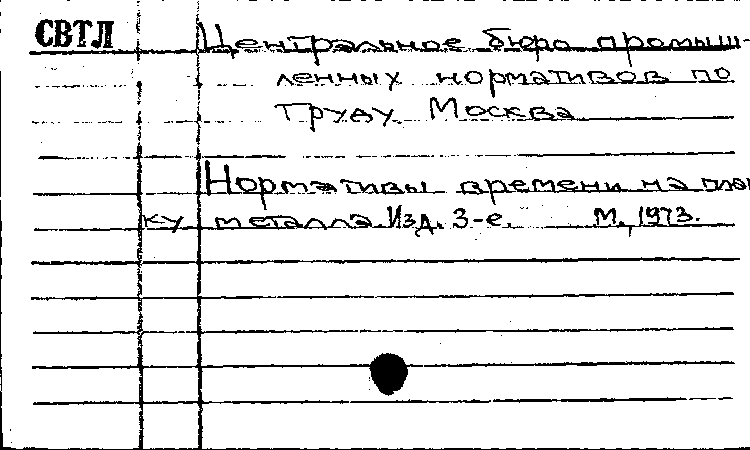 СВТЛ Центральное бюро промыш-
ленных нормативов по
труду. Москва
Нормативы времени на плав
ку металла. Изд. 3-е. М., 1973.